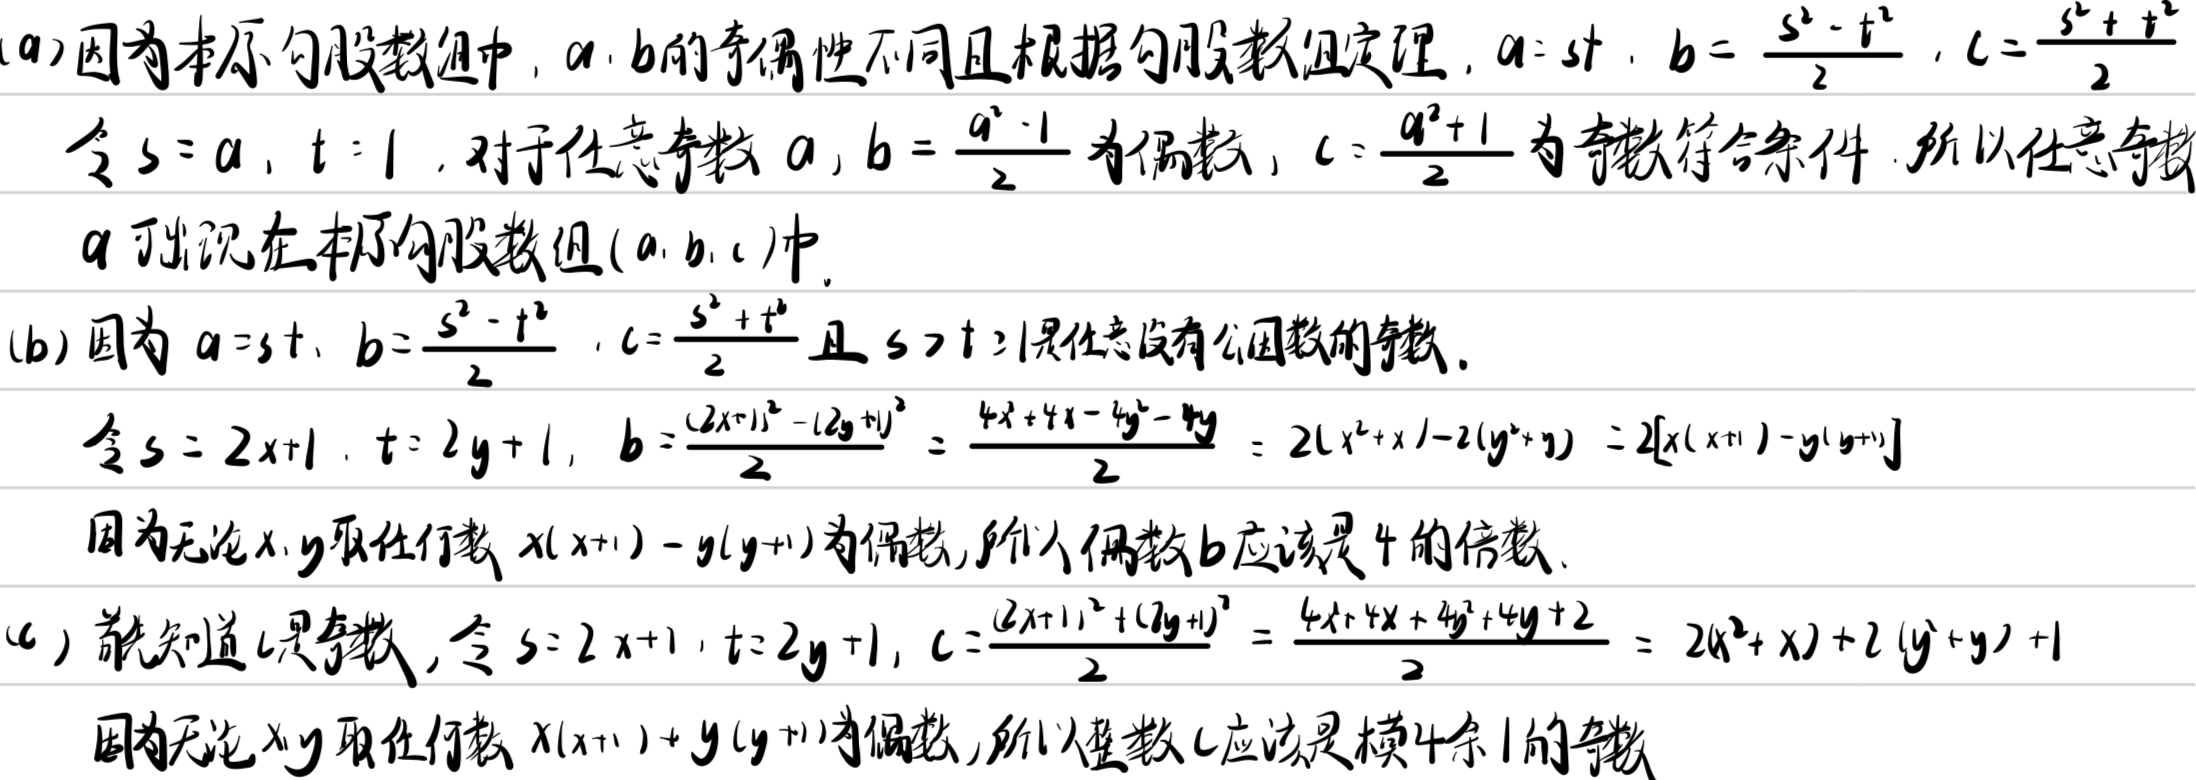 (a) 因为本原勾股数组中，a、b的奇偶性不同且根据勾股数组定理，a=st、b = \frac{s²-t²}{2}，c=\frac{s²+t²}{2}
令 s=a，t=1，对于任意奇数 a，b = \frac{a²-1}{2} 为偶数，c=\frac{a²+1}{2} 为奇数符合条件．所以任意奇数
a 可出现在本原勾股数组(a、b、c)中。
(b) 因为 a=st、b=\frac{s²-t²}{2}，c=\frac{s²+t²}{2} 且 s>t≥1是任意没有公因数的奇数．
令 s=2x+1、t=2y+1，b=\frac{(2x+1)²-(2y+1)²}{2} = \frac{4x²+4x-4y²-4y}{2} = 2(x²+x)-2(y²+y) = 2[x(x+1)-y(y+1)]
因为无论x、y取任何数 x(x+1)-y(y+1)为偶数，所以偶数b应该是4的倍数．
(c) 首先知道c是奇数，令 s=2x+1，t=2y+1，c=\frac{(2x+1)²+(2y+1)²}{2} = \frac{4x²+4x+4y²+4y+2}{2} = 2(x²+x)+2(y²+y)+1
因为无论x、y取任何数 x(x+1)+y(y+1)为偶数，所以整数c应该是模4余1的奇数